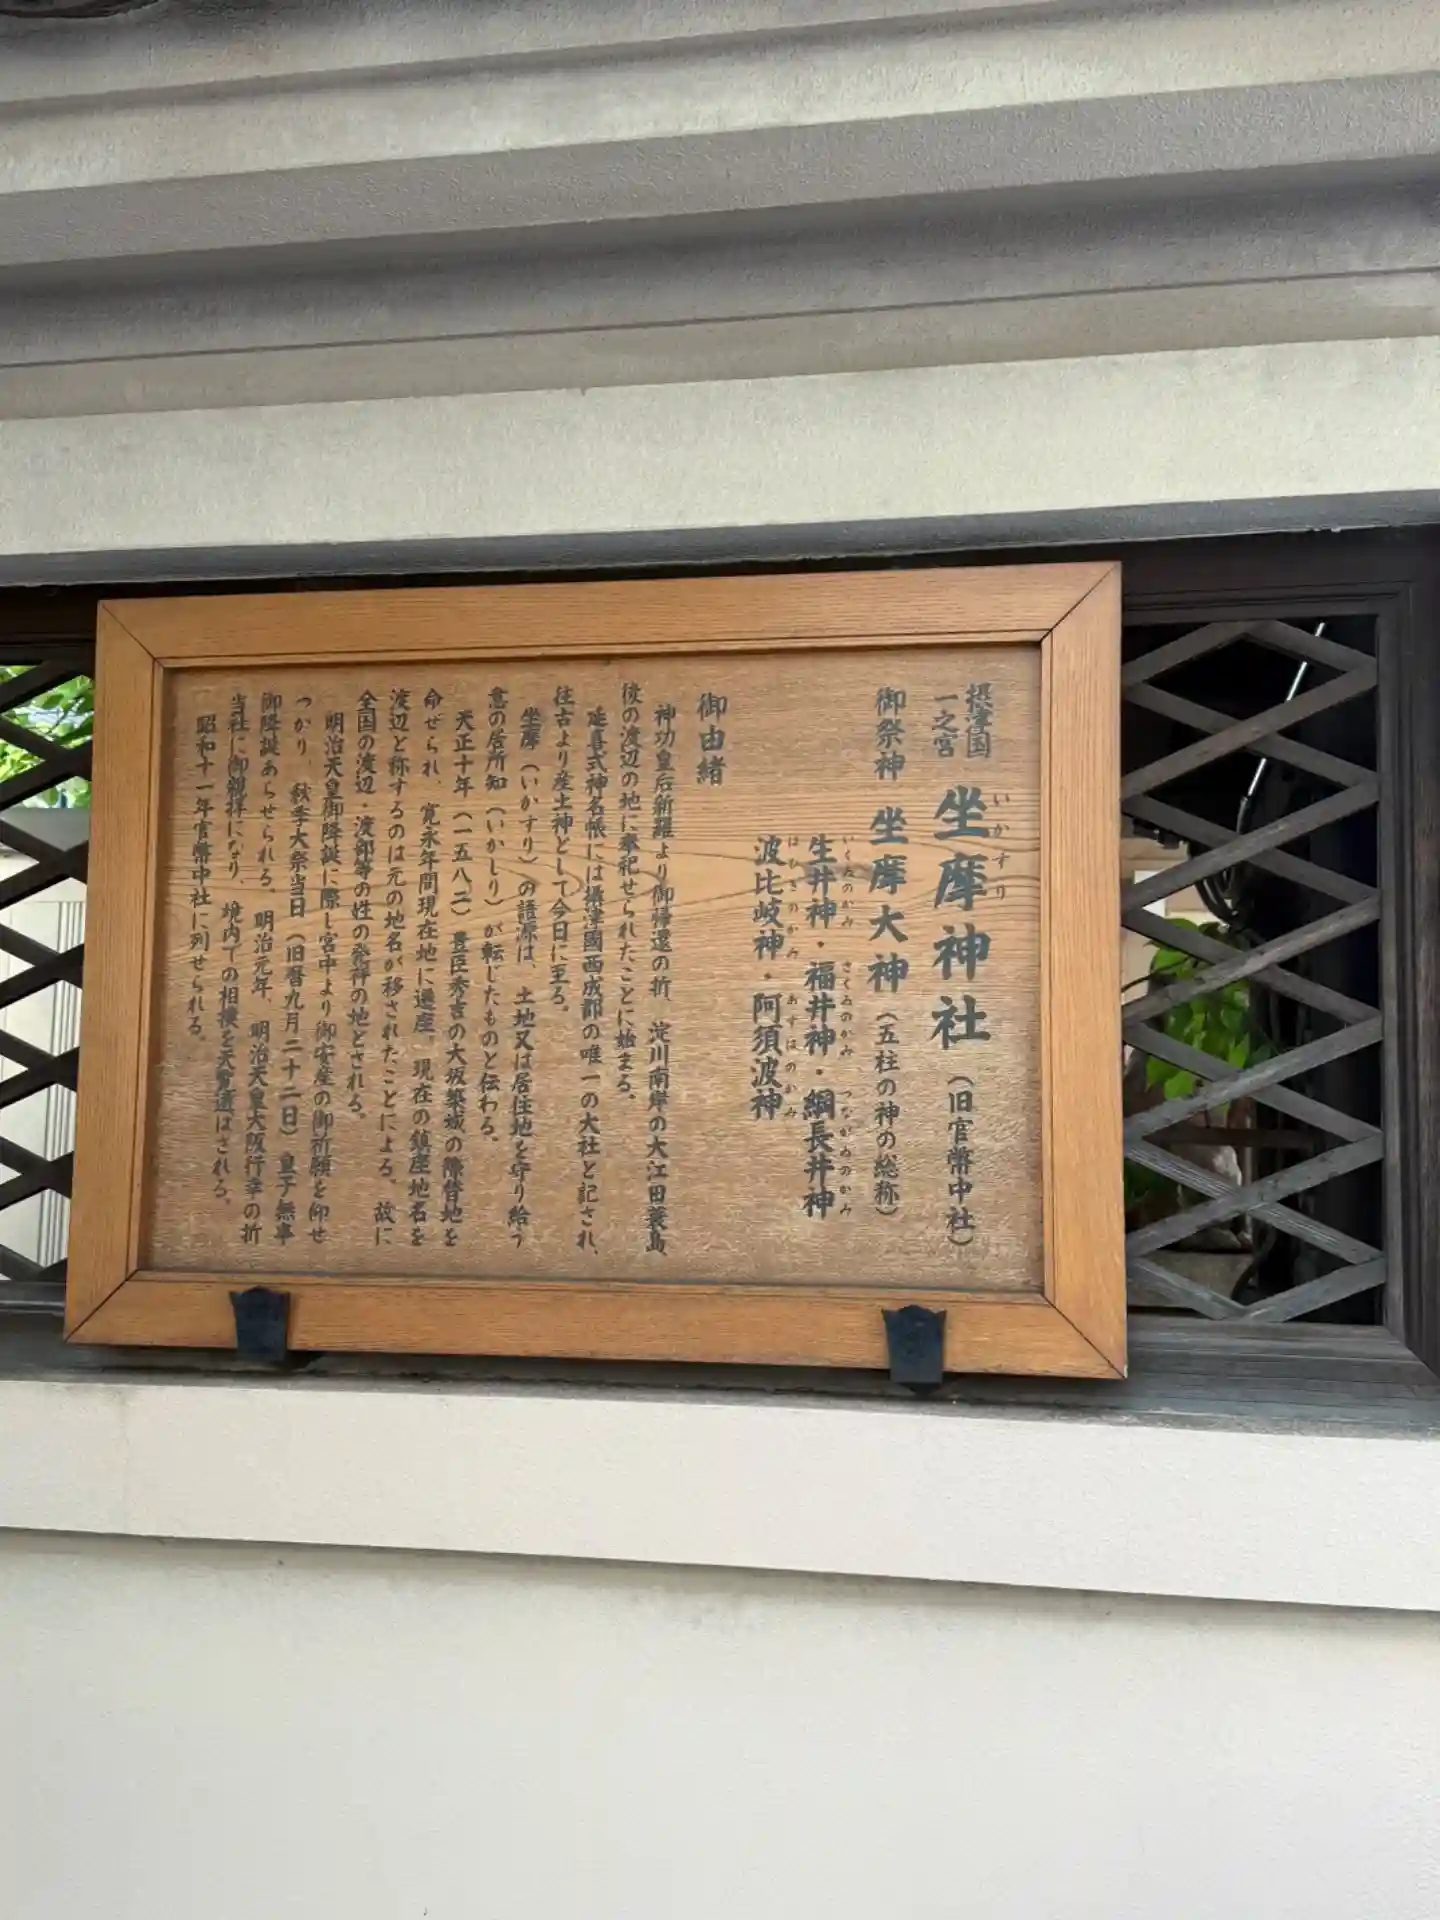 摂津国
一之宮
坐摩神社（旧官幣中社）
いかすり
御祭神 坐摩大神（五柱の神の総称）
生井神・福井神・綱長井神
いくゐのかみ さくゐのかみ つながゐのかみ
波比岐神・阿須波神
はひきのかみ あすはのかみ
御由緒
神功皇后新羅より御帰還の折、淀川南岸の大江田蓑島
後の渡辺の地に奉祀せられたことに始まる。
延喜式神名帳には摂津國西成郡の唯一の大社と記され、
往古より産土神として今日に至る。
坐摩（いかすり）の語源は、土地又は居住地を守り給う
意の居所知（いかしり）が転じたものと伝わる。
天正十年（一五八二）豊臣秀吉の大坂築城の際替地を
命ぜられ、寛永年間現在地に遷座。現在の鎮座地名を
渡辺と称するのは元の地名が移されたことによる。故に
全国の渡辺・渡部等の姓の発祥の地とされる。
明治天皇御降誕に際し宮中より御安産の御祈願を仰せ
つかり、秋季大祭当日（旧暦九月二十二日）皇子無事
御降誕あらせられる。明治元年、明治天皇大阪行幸の折
当社に御親拝になり、境内での相撲を天覧遊ばされる。
昭和十一年官幣中社に列せられる。